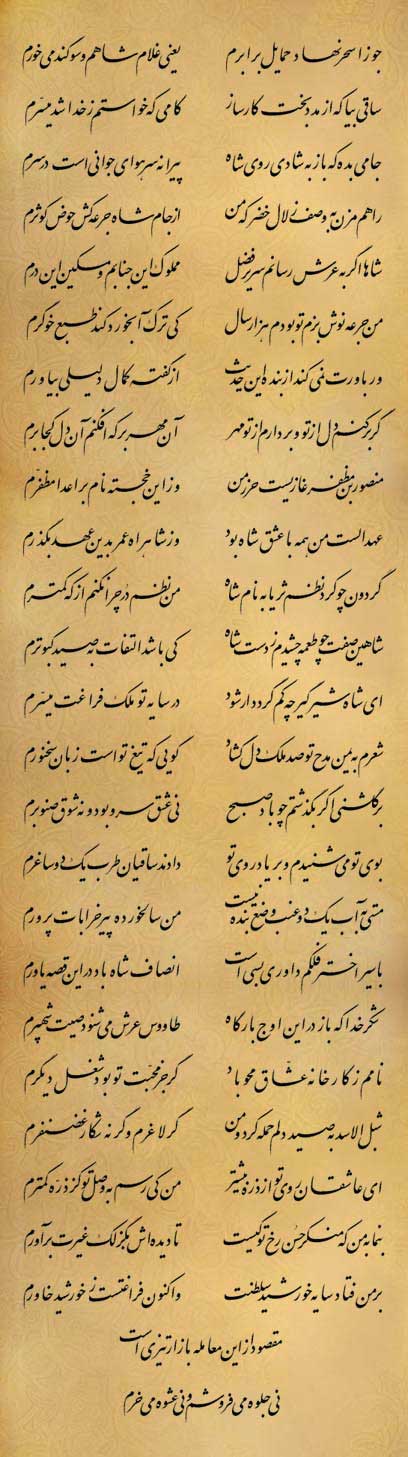 جوزا سحر نهاد حمایل برابرم یعنی غلام شاهم و سوگند می خورم
ساقی بیا که از مدد بخت کارساز کامی که خواستم ز خدا شد میسرم
جامی بده که باز به شادی روی شاه پیرانه سر هوای جوانی است در سرم
راهم مزن به وصف زلال خضر که من از جام شاه جرعه کش حوض کوثرم
شاها اگر به عرش رسانم سریر فضل مملوک این جنابم و مسکین این درم
من جرعه نوش بزم تو بودم هزار سال کی ترک آبخورد کند طبع خوگرم
ور باورت نمی کند از بنده این حدیث از گفته کمال دلیلی بیاورم
گر برکنم دل از تو و بردارم از تو مهر آن مهر بر که افکنم آن دل کجا برم
منصور بن مظفر غازیست حرز من و از این خجسته نام بر اعدا مظفرم
عهد الست من همه با عشق شاه بود و از شاهراه عمر بدین عهد بگذرم
گردون چو کرد نظم ثریا به نام شاه من نظم در چرا نکنم از که کمترم
شاهین صفت چو طعمه چشیدم ز دست شاه کی باشد التفات به صید کبوترم
ای شاه شیرگیر چه کم گردد ار شود در سایه تو ملک فراغت میسرم
شعرم به یمن مدح تو صد ملک دل گشاد گویی که تیغ تو است زبان سخنورم
بر گلشنی اگر بگذشتم چو باد صبح نی عشق سرو بود و نه شوق صنوبرم
بوی تو می شنیدم و بر یاد روی تو دادند ساقیان طرب یک دو ساغرم
مستی به آب یک دو عنب وضع بنده نیست من سالخورده پیر خرابات پرورم
با سیر اختر فلکم داوری بسی است انصاف شاه باد در این قصه یاورم
شکر خدا که باز در این اوج بارگاه طاووس عرش می شنود صیت شهپرم
نامم ز کارخانه عشاق محو باد گر جز محبت تو بود شغل دیگرم
شبل الاسد به صید دلم حمله کرد و من گر لاغرم وگرنه شکار غضنفرم
ای عاشقان روی تو از ذره بیشتر من کی رسم به وصل تو کز ذره کمترم
بنما به من که منکر حسن رخ تو کیست تا دیده اش به گزلک غیرت برآورم
بر من فتاد سایه خورشید سلطنت و اکنون فراغت است ز خورشید خاورم
مقصود از این معامله بازار تیزی است
نی جلوه می فروشم و نی عشوه می خرم